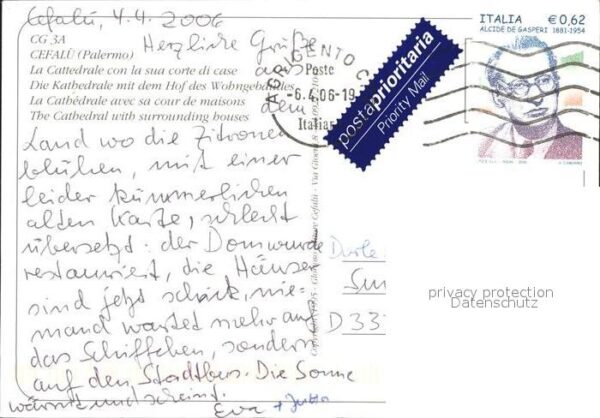 Cefalù, 4.4.2006
CG 3A
CEFALÙ (Palermo)
La Cattedrale con la sua corte di case
Die Kathedrale mit dem Hof des Wohngebäudes
La Cathédrale avec sa cour de maisons
The Cathedral with surrounding houses
Herzliche Grüße
aus
dem
Land wo die Zitronen
blühen, mit einer
leider kümmerlichen
alten Karte, schlecht
übersetzt: der Dom wurde
restauriert, die Häuser
sind jetzt schick, nie-
mand wartet mehr auf
das Schiffchen, sondern
auf den Stadtbus. Die Sonne
wärmt und scheint.
Eva + Jutta
AGRIGENTO C
Poste
-6.4.06-19
Italian
postaprioritaria
Priority Mail
ITALIA €0,62
ALCIDE DE GASPERI 1881-1954
D 33
privacy protection
Datenschutz